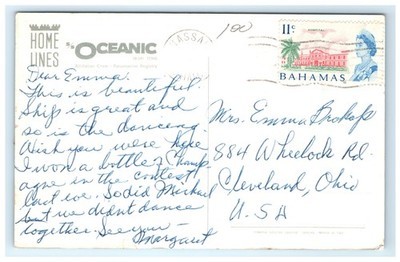 HOME
LINES
S.S. OCEANIC
NASSAU
100
11c
BAHAMAS
Dear Emma:
This is beautiful
Ship is great and
so is the dancing.
Wish you were here
I won a bottle of Champ
agne in the contest
last eve. So did Michael
but we didnt dance
together. See you—
Margaret
Mrs. Emma Brokop
884 Wheelock Rd.
Cleveland, Ohio
U.SA